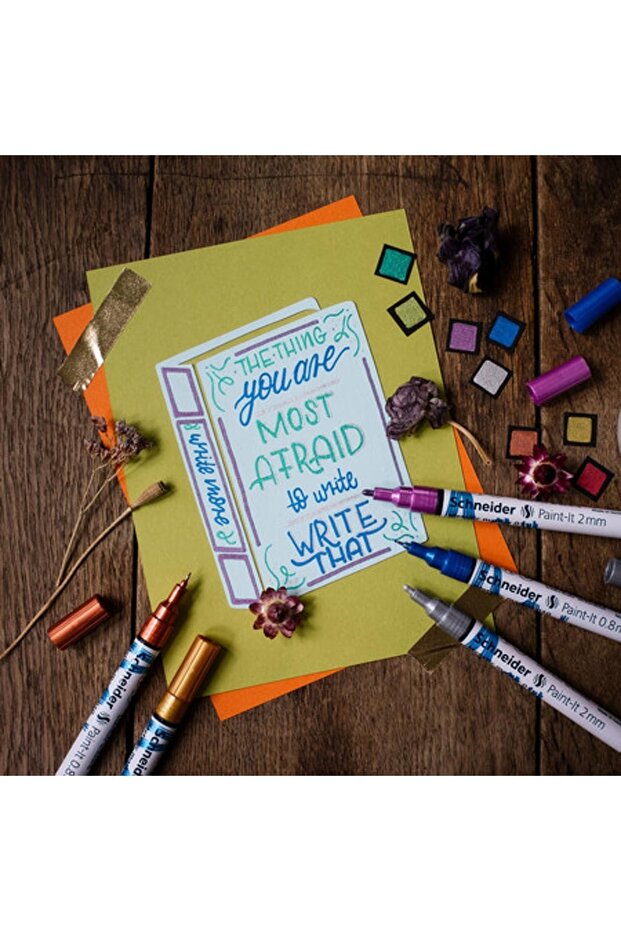 THE THING
you are
MOST
AFRAID
to write
WRITE
THAT
write more
Schneider Paint-It 2mm
Schneider Paint-It 0.8m
Schneider Paint-It 2mm
Schneider Paint-It 0.8
Schneider